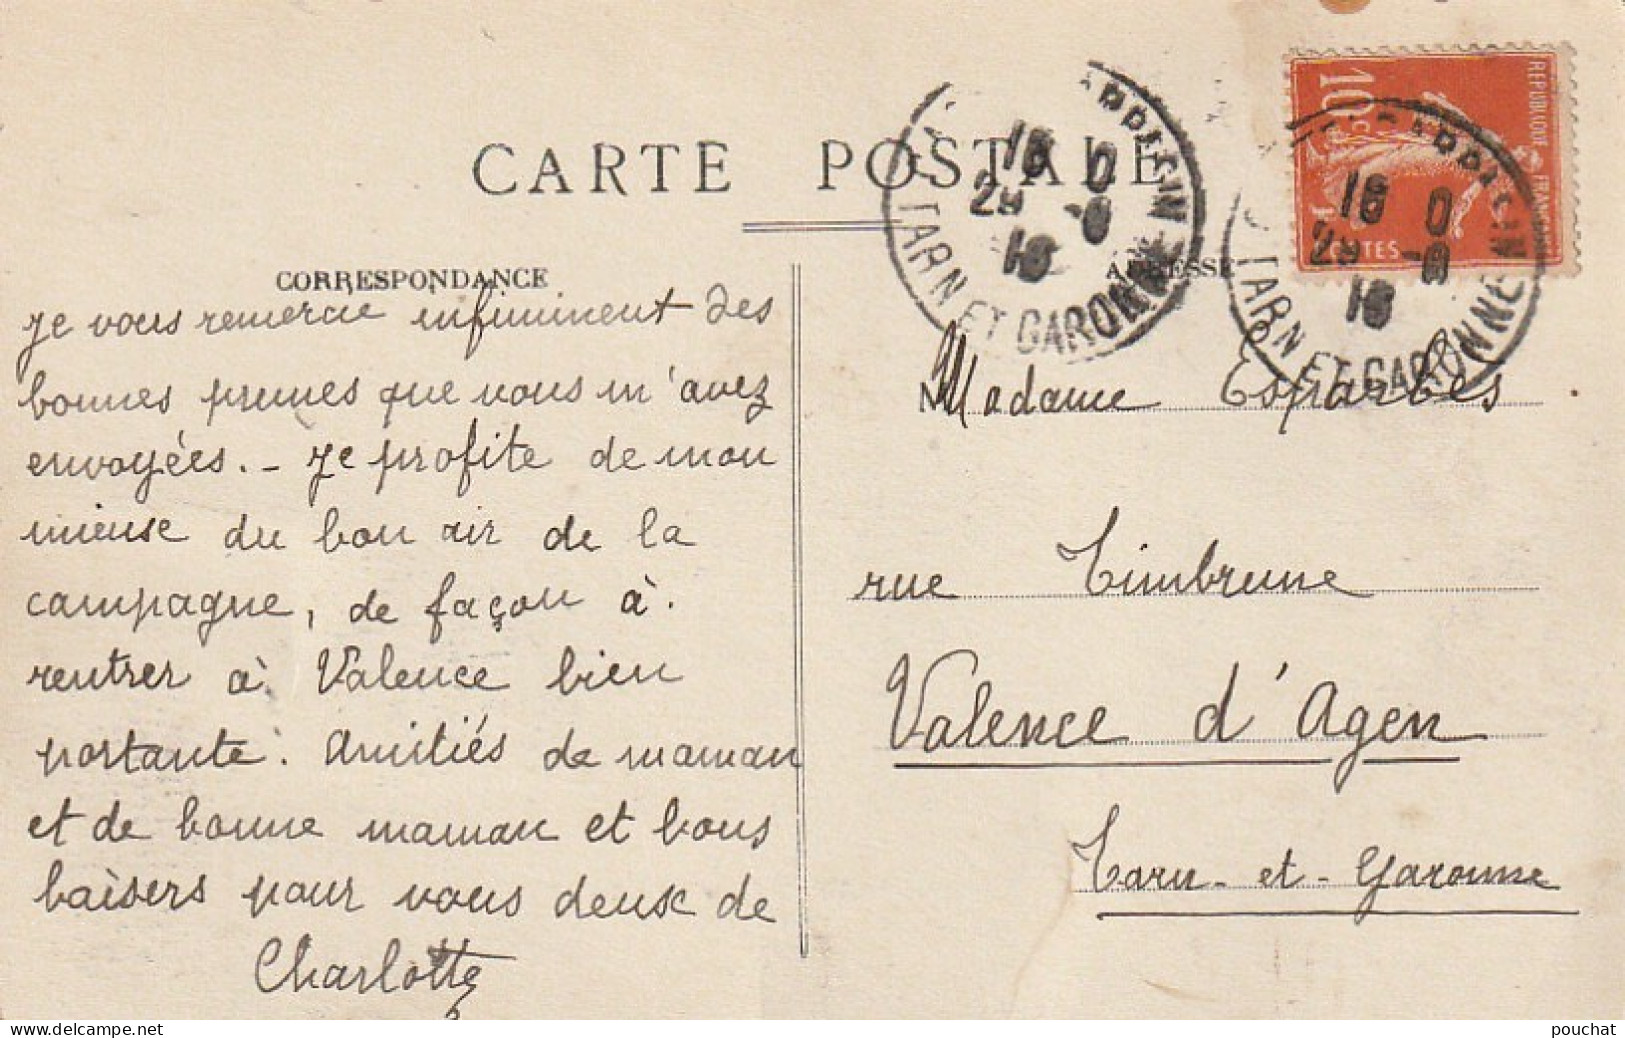 CARTE POSTALE
CORRESPONDANCE
Je vous remercie infiniment des
bonnes prunes que vous m'avez
envoyées. - Je profite de mon
mieux du bon air de la
campagne, de façon à.
rentrer à Valence bien
portante. Amitiés de maman
et de bonne maman et bons
baisers pour vous deux de
Charlotte
ADRESSE
Madame Esparbès
rue Timbrune
Valence d'Agen
Tarn-et-Garonne
REPUBLIQUE FRANÇAISE
10c
POSTES
TARN ET GARONNE
TARN ET GARONNE
https://www.delcampe.net
pouchat